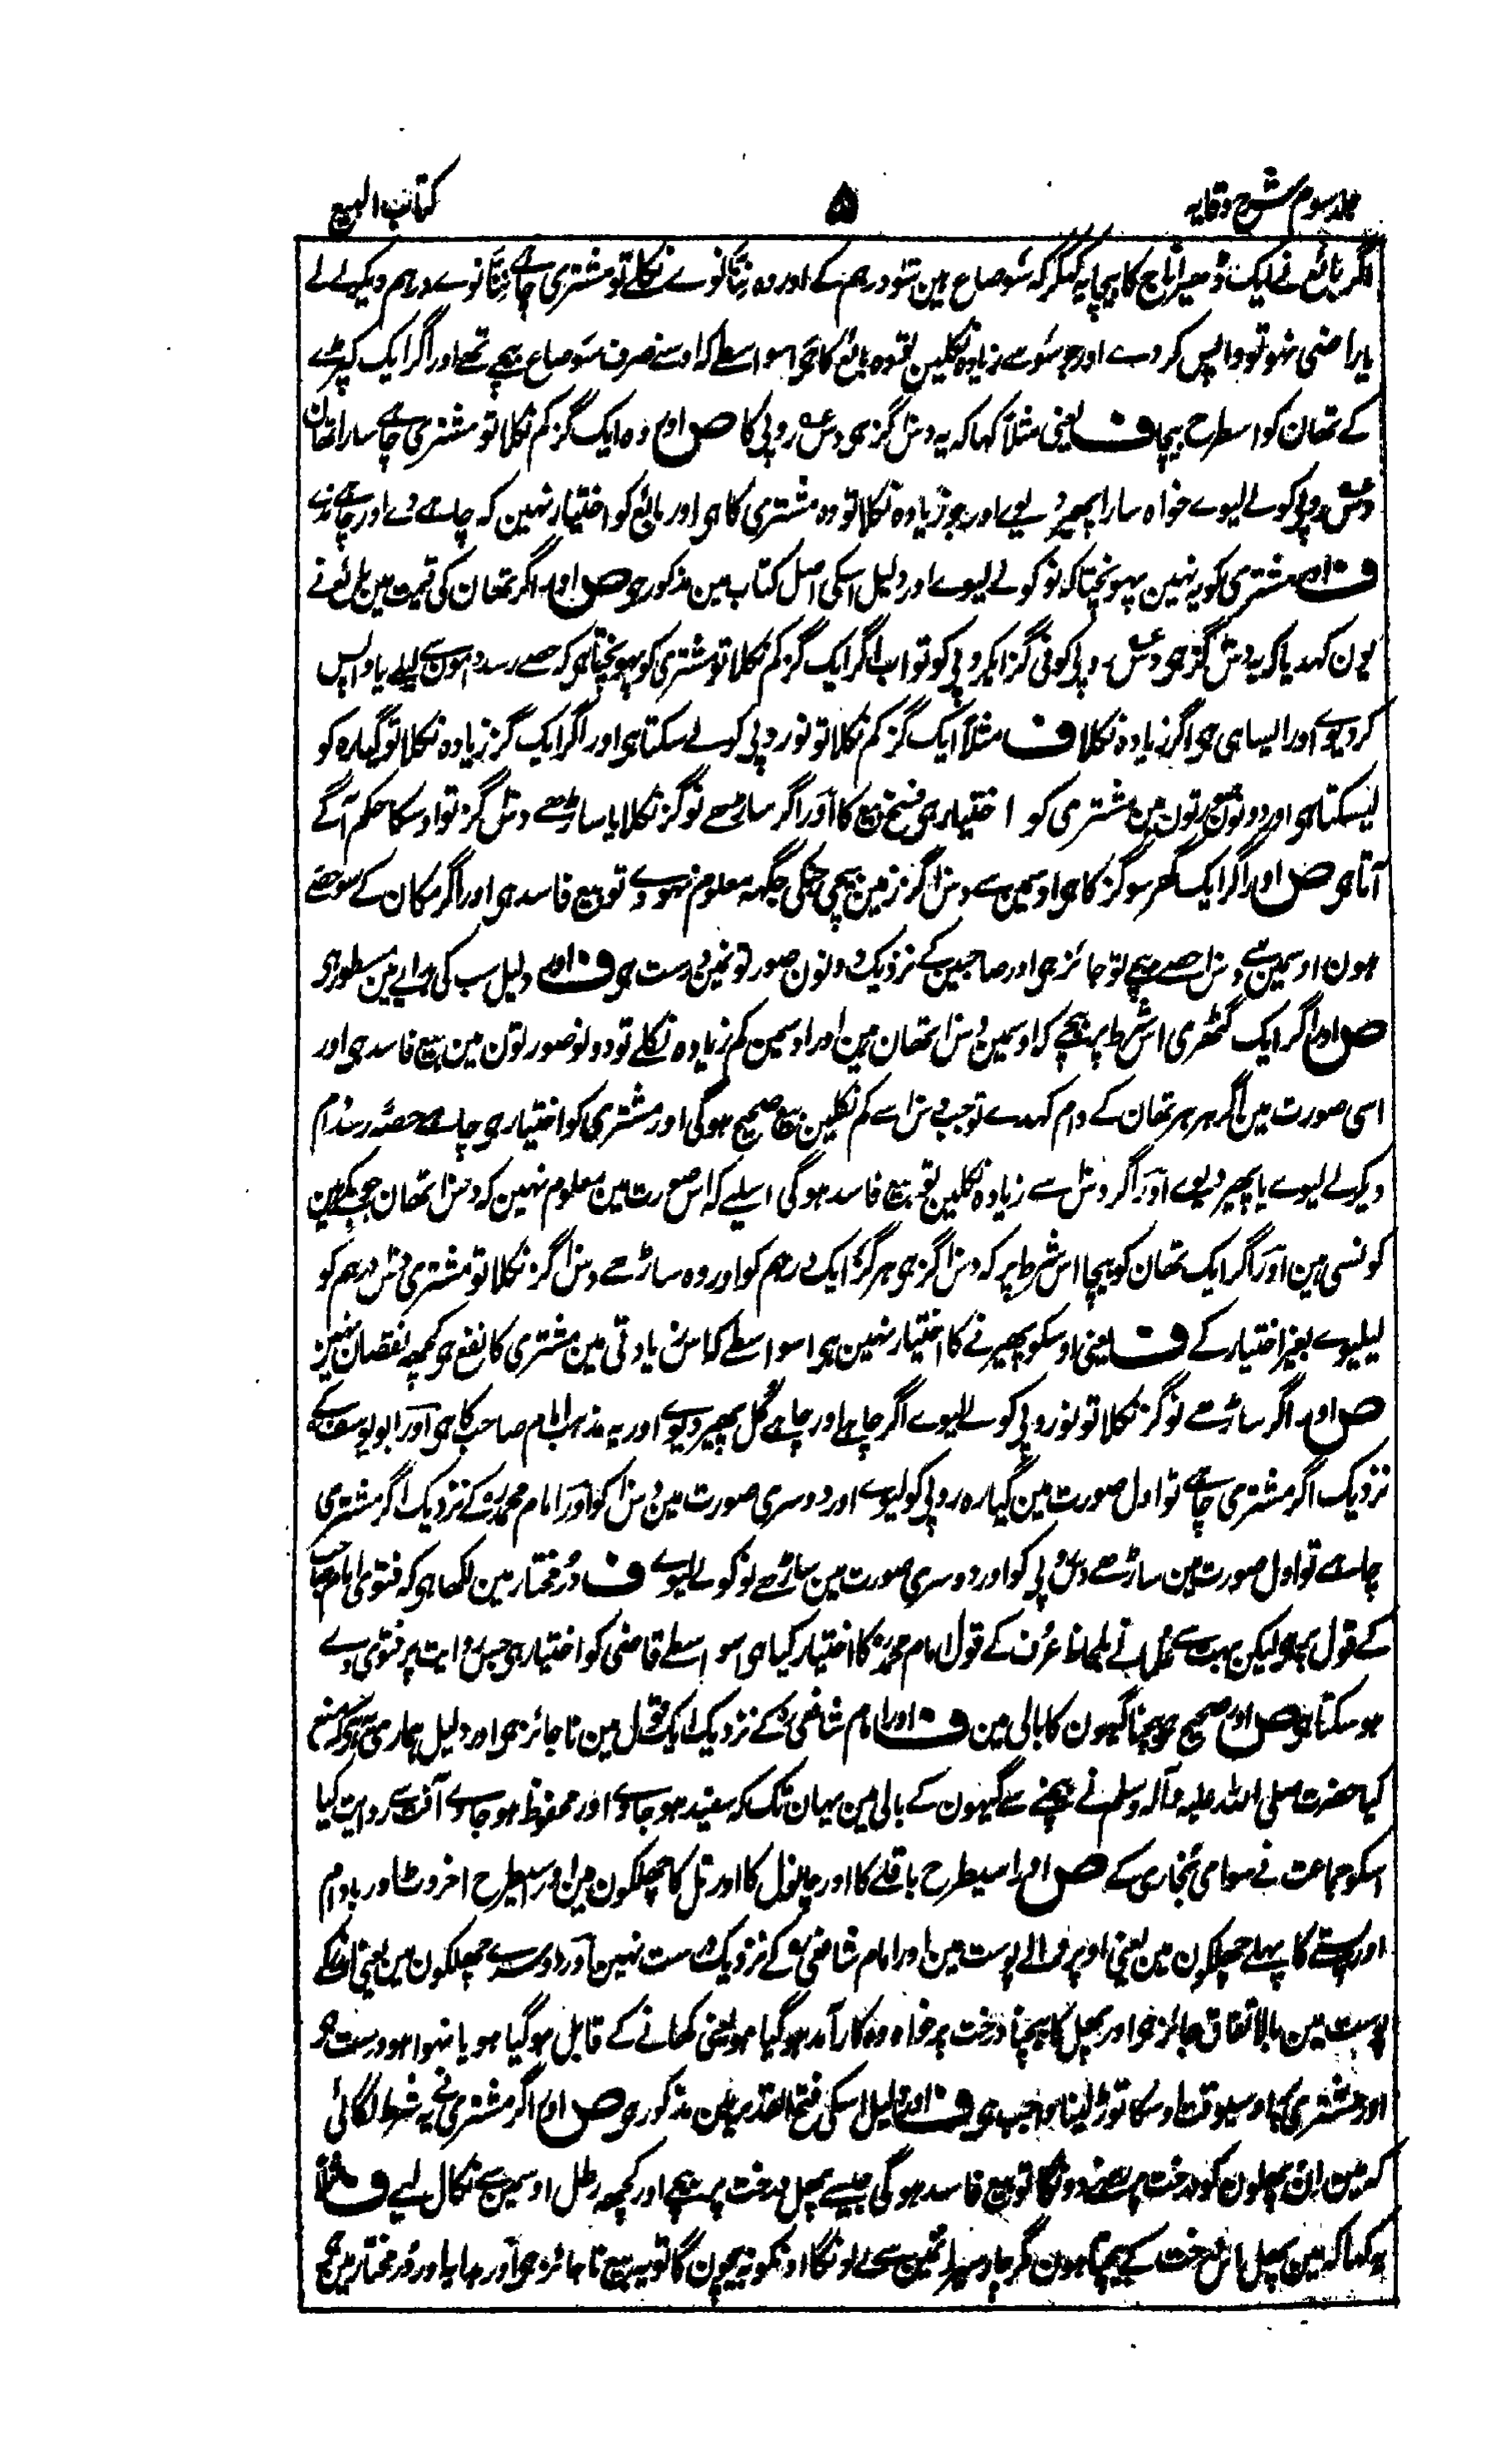 جلد سوم شرح وقایہ
۵
کتاب البیع
اگر بائع نے ایک ڈھیر اناج کا بیچا یہ کہکر کہ سَو صاع ہین سَو درہم کے اور وہ ننّانوے نکلے تو مشتری چاہے ننّانوے درہم دیکے لے لے
یا راضی نہو تو واپس کر دے اور جو سَو سے زیادہ نکلین تو وہ بائع کا ہی اسواسطے کہ اوسنے صرف سَو صاع بیچے تھے اور اگر ایک کپڑے
کے تھان کو اسطرح بیچا ف یعنی مثلاً کہا کہ یہ دس گز ہی دس روپی کا ص اور وہ ایک گز کم نکلا تو مشتری چاہے سارا تھان
دس روپی کو لے لیوے خواہ سارا پھیر دیوے اور جو زیادہ نکلا تو وہ مشتری کا ہی اور بائع کو اختیار نہین کہ چاہے دے اور چاہے نہ دے
ف اور مشتری کو یہ نہین پہونچتا کہ نو کو لے لیوے اور دلیل اسکی اصل کتاب مین مذکور ہی ص اور اگر تھان کی قیمت مین بائع نے
یون کہدیا کہ یہ دس گز ہی دس روپی کو فی گز ایک روپی کو تو اب اگر ایک گز کم نکلا تو مشتری کو پہونچتا ہی کہ حصے رسد دامون سے لیلے یا واپس
کر دیوے اور ایسا ہی ہی اگر زیادہ نکلا ف مثلاً ایک گز کم نکلا تو نو روپی کو لے سکتا ہی اور اگر ایک گز زیادہ نکلا تو گیارہ کو
لیسکتا ہی اور دونون صورتون مین مشتری کو اختیار ہی فسخ بیع کا اور اگر ساڑھے نو گز نکلا یا ساڑھے دس گز تو اوسکا حکم آگے
آتا ہی ص اور اگر ایک گھر سو گز کا ہی اوسمین سے دس گز زمین بیچی جسکی جگہہ معلوم نہووے تو بیع فاسد ہی اور اگر مکان کے سو حصے
ہون اوسمین سے دس حصے بیچے تو جائز ہی اور صاحبین کے نزدیک دونون صورتونمین درست ہی ف اور دلیل سب کی ہدایے مین مسطور ہی
ص اور اگر ایک گٹھری اس شرط پر بیچے کہ اوسمین دس تھان ہین اور اوسمین کم زیادہ نکلے تو دونو صورتون مین بیع فاسد ہی اور
اسی صورت مین اگر ہر ہر تھان کے دام کہدے تو جب دس سے کم نکلین بیع صحیح ہوگی اور مشتری کو اختیار ہی چاہے حصّہ رسد دام
دیکے لے لیوے یا پھیر دیوے اور اگر دس سے زیادہ نکلین تو بیع فاسد ہوگی اسلیے کہ اس صورت مین معلوم نہین کہ دس تھان جو بکے ہین
کونسی ہین اور اگر ایک تھان کو بیچا اس شرط پر کہ دس گز ہی ہر گز ایک درہم کو اور وہ ساڑھے دس گز نکلا تو مشتری دس درہم کو
لیلیوے بغیر اختیار کے ف یعنی اوسکو پھیرنے کا اختیار نہین ہی اسواسطے کہ اس زیادتی مین مشتری کا نفع ہی کچھ نقصان نہین
ص اور اگر ساڑھے نو گز نکلا تو نو روپی کو لے لیوے اگر چاہے اور چاہے کُل پھیر دیوے اور یہ مذہب امام صاحب کا ہی اور ابو یوسف کے
نزدیک اگر مشتری چاہے تو اول صورت مین گیارہ روپی کو لیوے اور دوسری صورت مین دس کو اور امام محمد کے نزدیک اگر مشتری
چاہے تو اول صورت مین ساڑھے دس روپی کو اور دوسری صورت مین ساڑھے نو کو لے لیوے ف دُر مختار مین لکھا ہی کہ فتویٰ امام صاحب
کے قول پر ہی لیکن بہت سے علما نے بلحاظ عُرف کے قول امام محمد کا اختیار کیا ہی اسواسطے قاضی کو اختیار ہی جس روایت پر فتویٰ دے
ہو سکتا ہی ص اور صحیح ہی بیچنا گیہون کا بالی مین ف اور امام شافعی کے نزدیک ایک قول مین ناجائز ہی اور دلیل ہماری یہ ہی کہ منع
کیا حضرت صلی اللہ علیہ وآلہ وسلم نے بیچنے سے گیہون کے بالی مین یہان تک کہ سفید ہو جاوے اور محفوظ ہو جاوے آفت سے روایت کیا
اسکو جماعت نے سوای بخاری کے ص اور اسیطرح باقلے کا اور چانول کا اور تل کا چھلکون مین اور اسیطرح اخروٹ اور بادام
اور پستے کا پہلے چھلکون مین یعنی اوپر والے پوست مین اور امام شافعی کے نزدیک درست نہین اور دوسرے چھلکون مین یعنی اندر کے
پوست مین بالاتفاق جائز ہی اور پھل کا بیچنا درخت پر خواہ وہ کارآمد ہو گیا ہو یعنی کھانے کے قابل ہو گیا ہو یا نہوا ہو درست ہی
اور مشتری پر اوسیوقت اوسکا توڑ لینا واجب ہی ف اور دلیل اسکی فتح القدیر مین مذکور ہی ص اور اگر مشتری نے یہ شرط لگائی
کہ مین ان پھلون کو درخت پر رہنے دونگا تو بیع فاسد ہوگی جیسے پھل درخت پر بیچے اور کچھ رطل اوسمین سے نکال لیے ف مثلاً
کہا کہ مین پھل اس درخت کے بیچتا ہون مگر چار سیر اسمین سے لے لونگا اونکو نہ بیچون گا تو یہ بیع ناجائز ہی اور ہدایا اور دُر مختار مین ہی